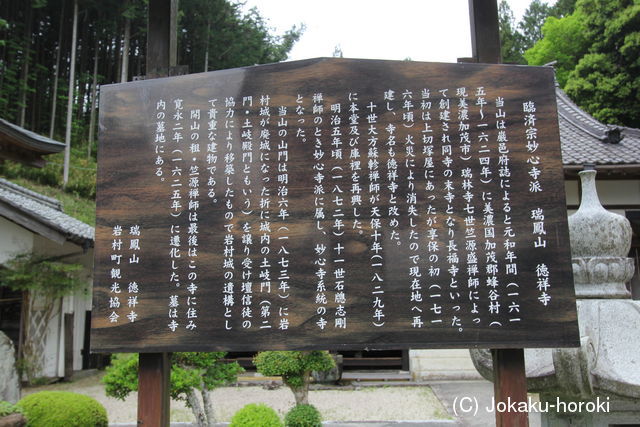 臨済宗妙心寺派　瑞鳳山　德祥寺
当山は巌邑府誌によると元和年間（一六一
五年～一六二四年）に美濃国加茂郡蜂谷村（
現美濃加茂市）瑞林寺七世竺源盛禅師によっ
て創建され同寺の末寺となり長福寺といった。
当初は上切塚屋にあったが享保の初（一七一
六年頃）火災により消失したので現在地へ再
建し、寺名を徳祥寺と改めた。
十世大方蘇軨禅師が天保十年（一八二九年）
に本堂及び庫裡を再興した。
明治五年頃（一八七二年）十一世石牕志剛
禅師のとき妙心寺派に属し、妙心寺系統の寺
となった。
当山の山門は明治六年（一八七三年）に岩
村城が廃城になった折に城内の土岐門（第二
門・土岐殿門ともいう）を譲り受け壇信徒の
協力により移築したもので岩村城の遺構とし
て貴重な建物である。
開山の祖・竺源禅師は最後はこの寺に住み
寛永二年（一六二五年）に遷化した。墓は寺
内の墓地にある。
瑞鳳山　德祥寺
岩村町観光協会
(C) Jokaku-horoki